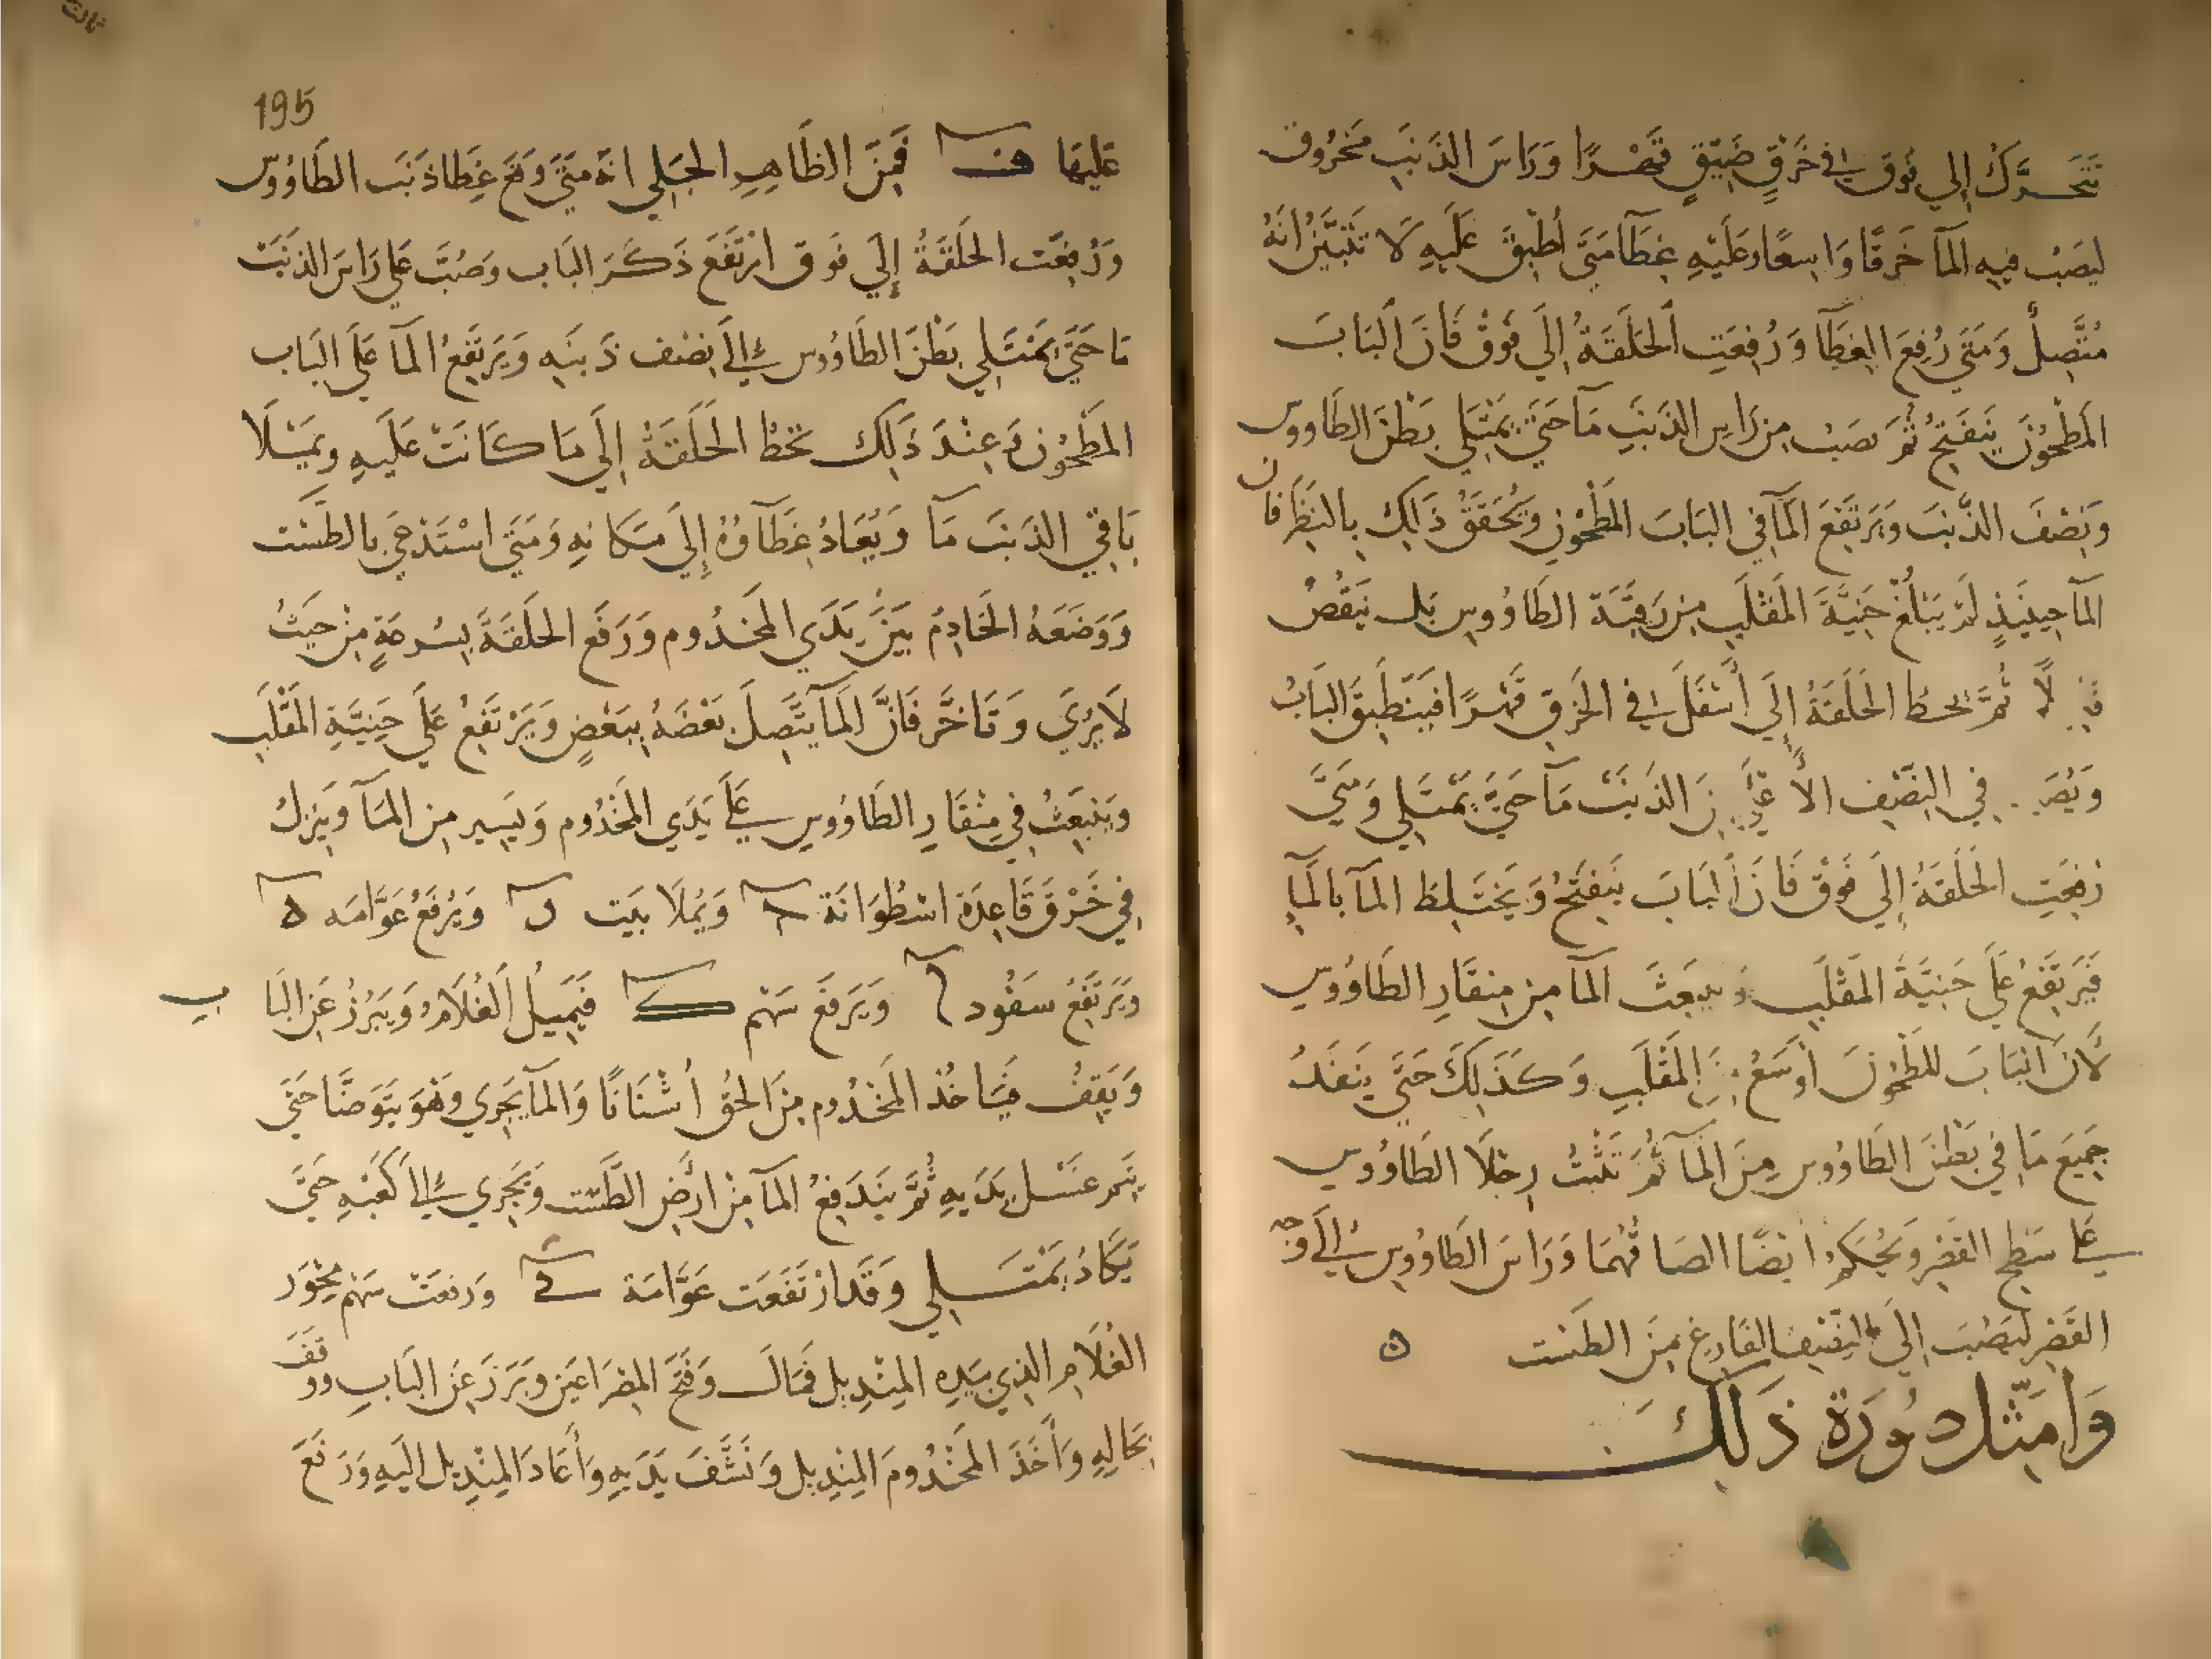 تَتَحَرَّكُ إلي فَوق في خَرْقٍ ضَيّقٍ قَصْدًا وَرَاسَ الذَنَبِ مَخرُوق
ليَصَبُ فيهِ المآ خَرقًا وَاسِعًا وعَلَيْهِ غِطَآ مَتَى أُطْبِقَ عَلَيهِ لَا تَتَبَيَّنُ انَهُ
مُتَّصِلٌ وَمَتَى رُفِعَ الغِطَآ وَرُفِعَتِ الحَلَقَةُ إلَي فَوْق فَانَ البَابَ
المَطْحُوُنَ يَنفَتِحُ ثُمَّ يصَبُ مِن رَاسِ الذَنَبِ مَآ حَتَى يَمْتَلِي بَطْنَ الطَاووس
وَنِصْفَ الذَّنَبَ وَيَرتَفِعَ المَآ في البَابَ المَطْحُونِ وَيُحَقَقُ ذَلِكَ بِالنَظَرِ فَان
المآ حِينَيذٍ لَمْ يَبْلُغْ حَنِيَّةَ المَقْلَبِ مِن رَقَبَةَ الطَاوُوسِ بَل يَنقُصُ
ثُمَّ تُحَطُ الحَلَقَةُ إلَي أَسْفَلَ في الخَرقِ قَسْرًا فيَنطَبِقَ البَابُ
في النِصْفِ الأعْلَى الذَنَبَ مَآ حَتَّى يَمْتَلِي وَمَتَى
رُفِعَتِ الحَلَقَةُ إلَي فَوْقَ فَانَ البَابَ يَنفَتِحُ وَيَختَلِطَ المآ بالمَآءِ
فَيَرتَفِعُ عَلَى حَنِيَّةَ المَقْلَبِ وَينبَعِثَ المآ مِن مِنقَارِ الطَاوُوسِ
لأنَ البَابَ المَطْحُوُنَ أوسَعُ مِنَ المَقْلَبِ وَكَذَلِكَ حَتَى يَنفَدُ
جَمِيعَ مَا في بَطْنَ الطَاوُوسِ مِنَ المَآ ثُمَّ تَثبُتُ رِجْلَا الطَاوُوسِ
عَلي سَطحِ القَصْرِ وَيُحْكَمُ أيضًا الصَاقُهُمَا وَرَاسَ الطَاوُوسِ إلَي وَجْه
القَصْرِ ليَصُبَ إلَي النِصْفِ الفَارِغِ مِنَ الطَسْت ه
وَامَثِّلُ صُورَةَ ذَلِكَ
195
عَليهَا فَمِنَ الظَاهِرِ الجَلِي انَهُ مَتَى رُفِعَ غِطَا ذَنَبَ الطَاوُوس
وَرُفِعَت الحَلَقَةُ إلَي فَوق ارْتَفَعَ ذَكَرَ البَاب وَصُبَّ عَلي رَاسَ الذَنَبَ
مَا حَتَّي يَمْتَلِي بَطْنَ الطَاوُوس إلي نِصْف ذَنَبِهِ وَيَرتَفِعُ المآ عَلَى البَاب
المَطْحُونِ وَعِنْدَ ذَلِكَ تحَطُ الحَلَقَةُ إلَي مَا كَانَتْ عَلَيهِ ويَمْتَلَا
بَاقي الذَنَبَ مَا وَيُعَادُ غِطَآؤهُ إلَي مَكَانِهِ وَمَتَى اسْتَدْعَي بالطَسْت
وَوَضَعَهُ الخَادِمُ بَيْنَ يَدَي المَخدُوم وَرَفَع الحَلَقَةَ بِسُرعَةٍ مِنْ حيَثُ
لَا يُرَي وَتَاخَّر فَانَّ المآ يَتَّصِلَ بَعْضَهُ ببَعْضٍ وَيَرْتَفِعُ عَلَى حَنِيَّةِ المَقْلَبِ
وَيَنبَعِثُ في مِنْقَارِ الطَاوُوسِ عَلَي يَدَي المَخْدُوم وَيَسِير مِن المَآ وَيَنزِلُ
في خَرْقَ قَاعِدَة اسْطُوَانَة وَيَملَا بَيت وَيَرْفَعُ عَوَّامَه
وَيَرتَفِعُ سَفُّود وَيَرفَعَ سَهْم فَيَمِيلُ الغُلَامُ وَيَبْرُزُ عَنِ البَاب
وَيَقِفُ فَيَاخُذ المَخدُوم مِنَ الحُقِ أُشْنَانًا وَالمآ يَجرِي وَهوَ يَتَوَضَّا حَتَى
يَتم غسْل يَدَيهِ ثُمَّ يَندَفِعُ المآ مِنْ ارْضِ الطَّسْت وَيَجرِي إلي كَعْبِهِ حَتَّي
يَكَادُ يَمْتَلي وَقَد ارْتَفَعَت عَوَّامَة وَرَفعَتْ سَهْم مِحْوَر
الغُلَامِ الذِي بيَدِهِ المِنْدِيل فَمَالَ وَفَتَحَ المِصْرَاعَين وَبَرَزَ عَنِ البَابِ وَوَقَفَ
بحَالِهِ وَأَخَذَ المَخْدُومَ المِندِيل وَنَشَّفَ يَدَيهِ وَأَعَادَ المِنْدِيل إلَيهِ وَرَفَعَ